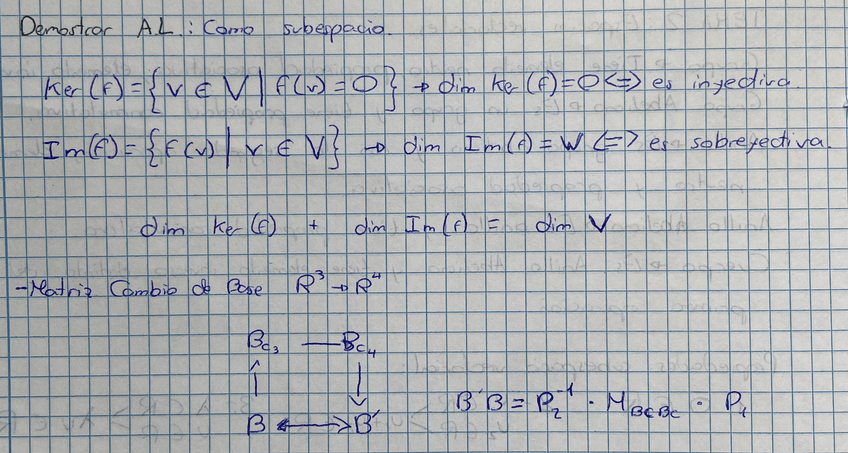 Demostrar A.L.: Como subespacio.
Ker(f)={v ∈ V | f(v)=0} → dim Ker(f)=0 <=> es inyectiva.
Im(f)={f(v) | v ∈ V} → dim Im(f)=W <=> es sobreyectiva.
dim Ker(f) + dim Im(f) = dim V
-Matriz Cambio de Base R³→R⁴
B_{C₃} — B_{C₄}
↑ ↓
B ↔ B'
B'B = P₂⁻¹ · M_{BcBc} · P₁